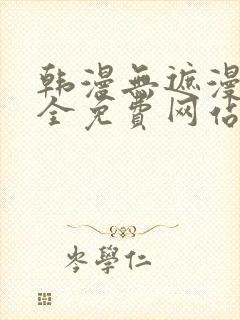 韩漫無遮漫
全免費网佔
岑學仁